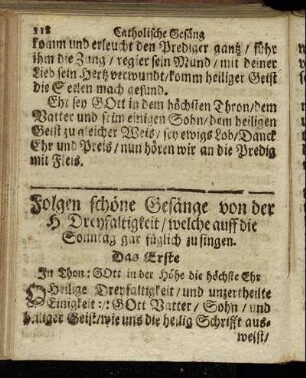 118 Catholische Gesäng
komm und erleucht den Prediger gantz / führ
ihm die Zung / regier sein Mund / mit deiner
Lieb sein Hertz verwundt / komm heiliger Geist
die Seelen mach gesund.
Ehr sey GOtt in dem höchsten Thron / dem
Vatter und seim einigen Sohn / dem heiligen
Geist zu gleicher Weis / sey ewigs Lob / Danck
Ehr und Preis / nun hören wir an die Predig
mit Fleis.
Folgen schöne Gesänge von der
H Dreyfaltigkeit / welche auff die
Sonntag gar füglich zu singen.
Das Erste
In Thon: GOtt in der Höhe die höchste Ehr
O Heilige Dreyfaltigkeit / und unzertheilte
Einigkeit :/: GOtt Vatter / Sohn / und
heiliger Geist / wie uns die heilig Schrifft aus-
weisst /